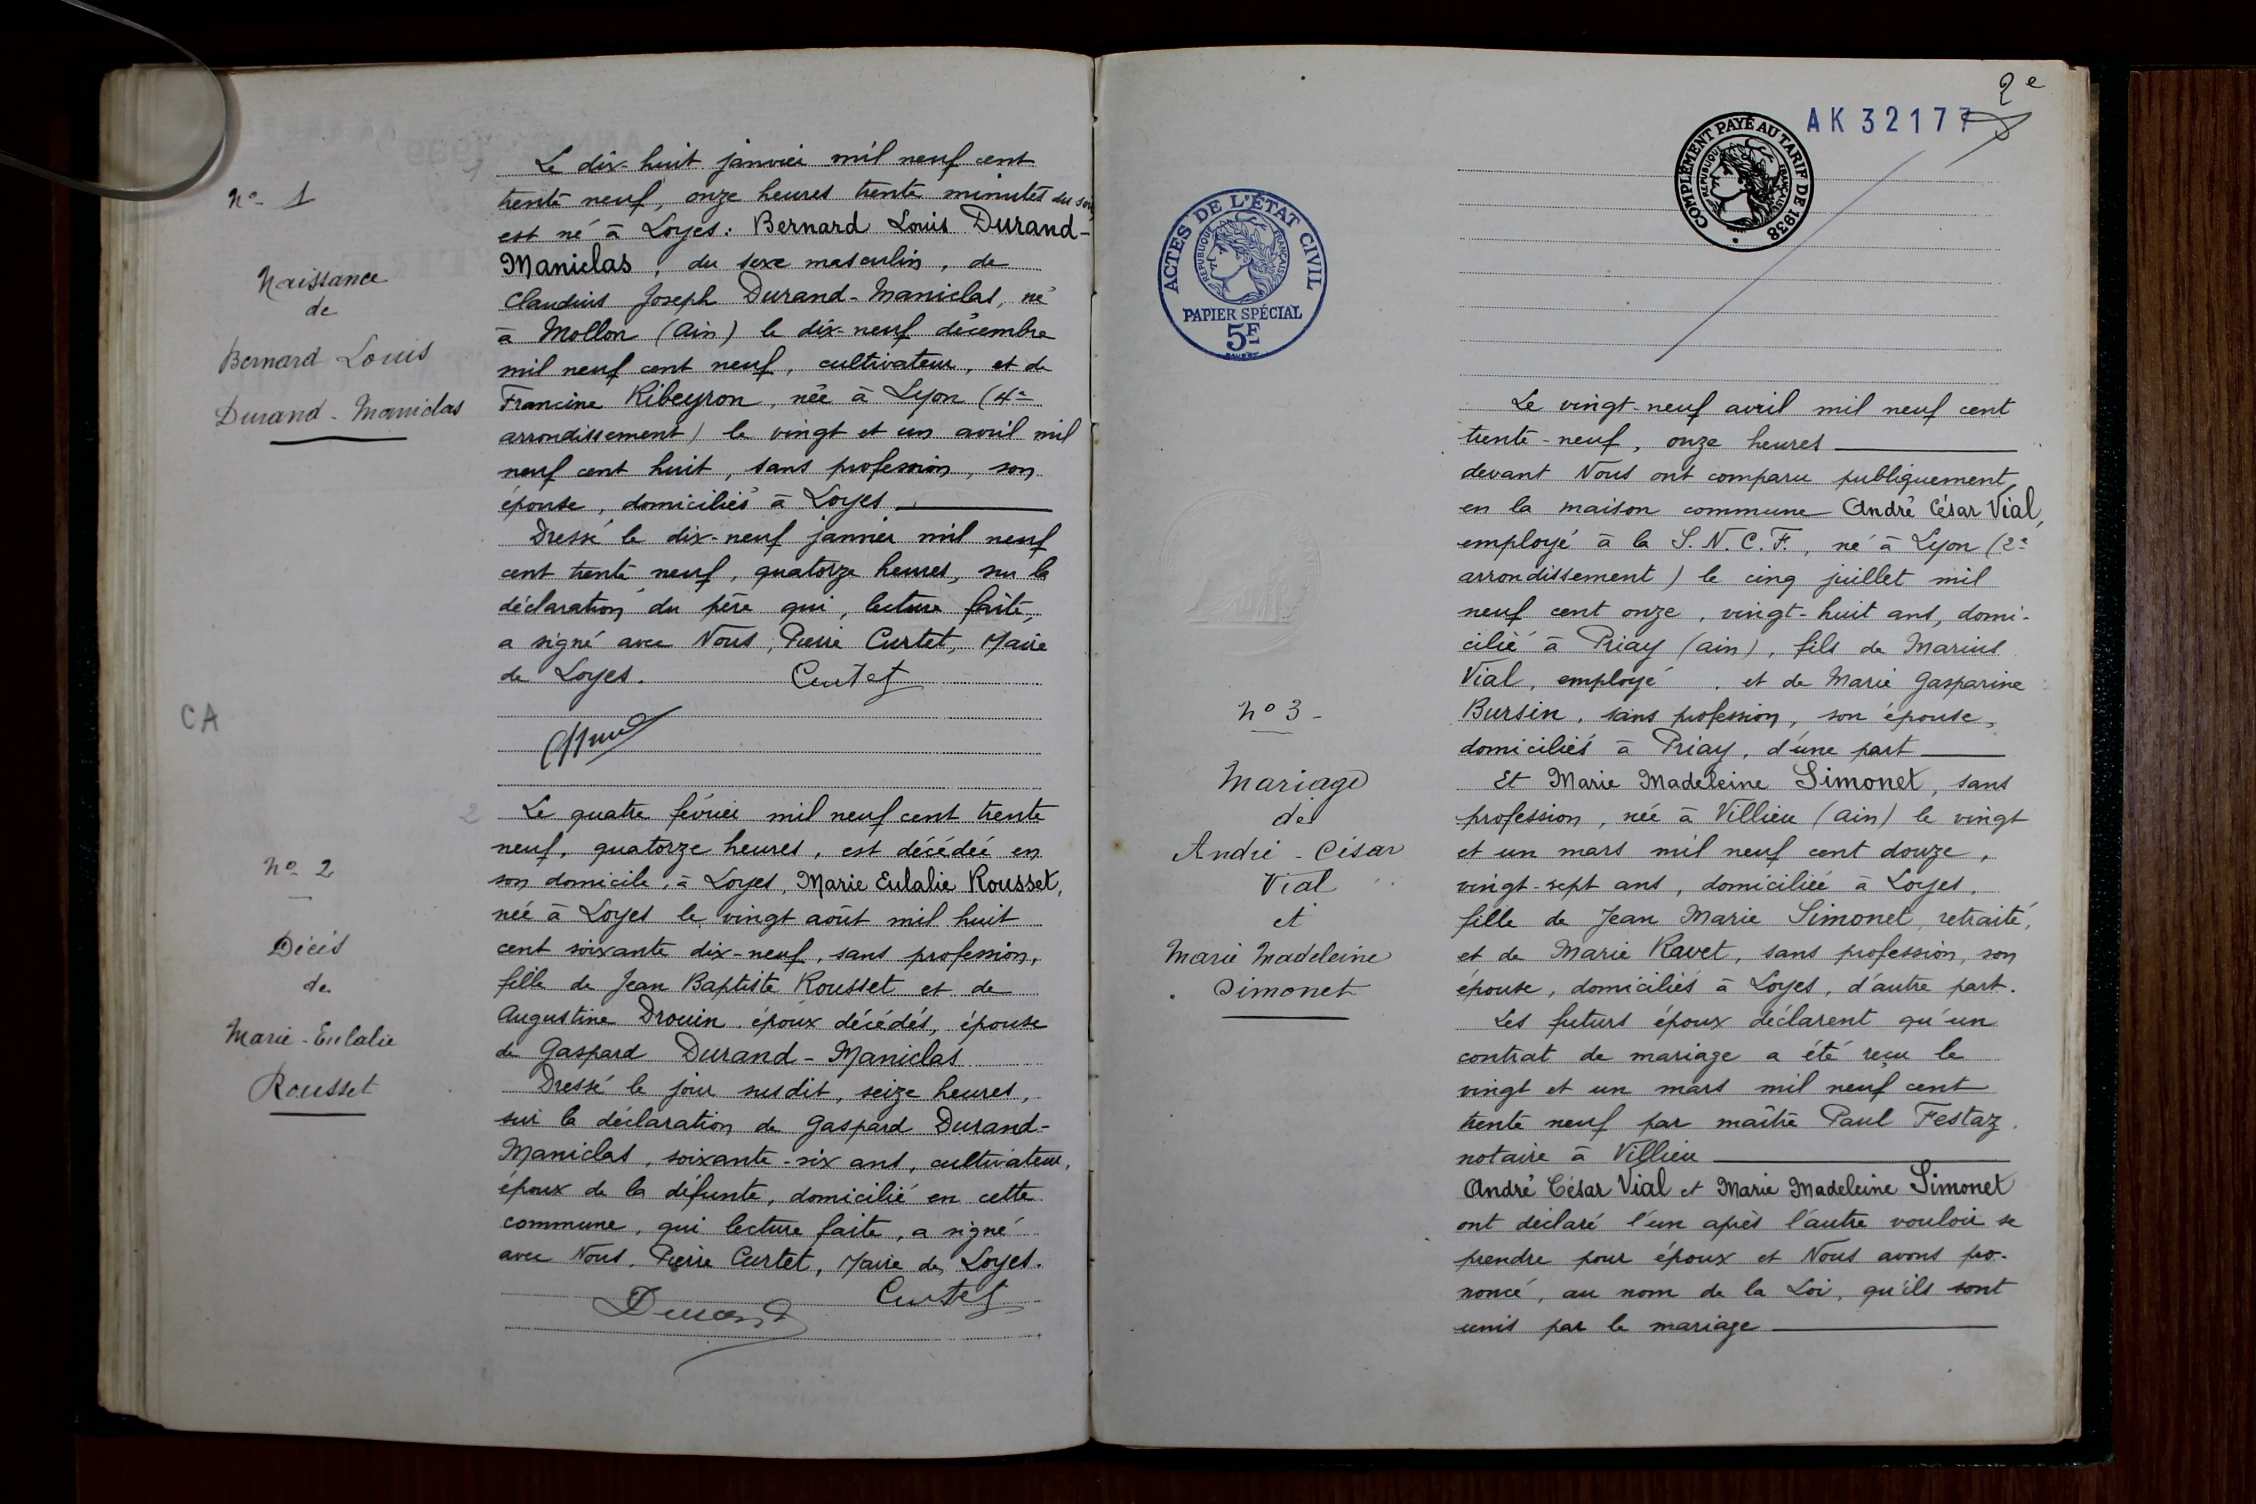 nº 1
Naissance
de
Bernard Louis
Durand - Maniclas
1
Le dix-huit janvier mil neuf cent
trente neuf, onze heures trente minutes du soir
est né à Loyes : Bernard Louis Durand-
Maniclas, du sexe masculin, de
Claudius Joseph Durand-Maniclas, né
à Mollon (Ain) le dix-neuf décembre
mil neuf cent neuf, cultivateur, et de
Francine Ribeyron, née à Lyon (4e
arrondissement) le vingt et un avril mil
neuf cent huit, sans profession, son
épouse, domiciliés à Loyes
Dressé le dix-neuf janvier mil neuf
cent trente neuf, quatorze heures, sur la
déclaration du père qui, lecture faite,
a signé avec Nous, Pierre Curtet, Maire
de Loyes. Curtet
CA
nº 2
Décès
de
Marie-Eulalie
Rousset
2
Le quatre février mil neuf cent trente
neuf, quatorze heures, est décédée en
son domicile, à Loyes, Marie Eulalie Rousset,
née à Loyes le vingt août mil huit
cent soixante dix-neuf, sans profession,
fille de Jean Baptiste Rousset et de
Augustine Drouin époux décédés, épouse
de Gaspard Durand-Maniclas
Dressé le jour susdit, seize heures,
sur la déclaration de Gaspard Durand-
Maniclas, soixante-six ans, cultivateur,
époux de la défunte, domicilié en cette
commune, qui lecture faite, a signé
avec Nous, Pierre Curtet, Maire de Loyes.
Curtet
Durand
2e
AK 32177
COMPLÉMENT PAYÉ AU TARIF DE 1938
RÉPUBLIQUE FRANÇAISE
ACTES DE L'ÉTAT CIVIL
RÉPUBLIQUE FRANÇAISE
PAPIER SPÉCIAL
5F
nº 3 -
Mariage
de
André - César
Vial
et
Marie Madeleine
Simonet
Le vingt-neuf avril mil neuf cent
trente-neuf, onze heures
devant Nous ont comparu publiquement
en la maison commune André César Vial,
employé à la S.N.C.F., né à Lyon (2e
arrondissement) le cinq juillet mil
neuf cent onze, vingt-huit ans, domi-
cilié à Priay (ain), fils de Marius
Vial, employé, et de Marie Gasparine
Bursin, sans profession, son épouse,
domiciliés à Priay, d'une part
Et Marie Madeleine Simonet, sans
profession, née à Villieu (ain) le vingt
et un mars mil neuf cent douze,
vingt-sept ans, domiciliée à Loyes,
fille de Jean Marie Simonet, retraité,
et de Marie Ravet, sans profession, son
épouse, domiciliés à Loyes, d'autre part.
Les futurs époux déclarent qu'un
contrat de mariage a été reçu le
vingt et un mars mil neuf cent
trente neuf par maître Paul Festaz
notaire à Villieu
André César Vial et Marie Madeleine Simonet
ont déclaré l'un après l'autre vouloir se
prendre pour époux et Nous avons pro-
noncé, au nom de la Loi, qu'ils sont
unis par le mariage